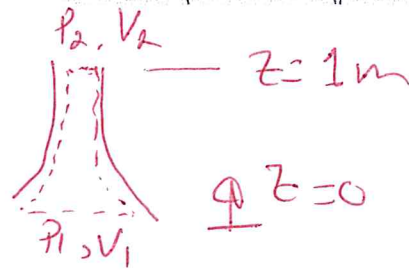 P2, V2
z = 1m
z = 0
P1, V1